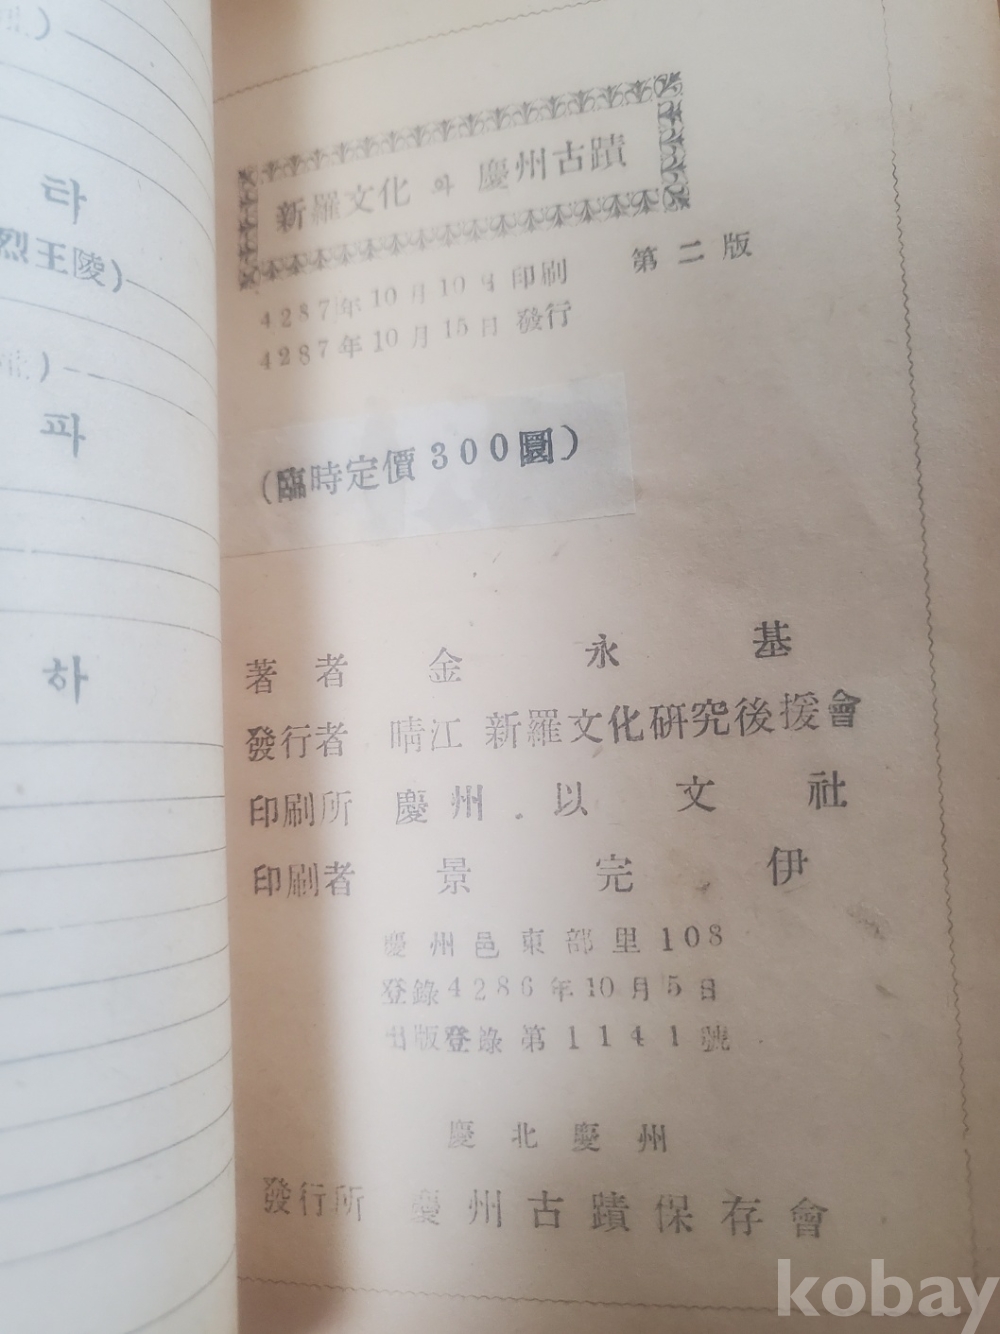 타
烈王陵)
파
하
新羅文化 와 慶州古蹟
4287年10月10日 印刷 第二版
4287年10月15日 發行
(臨時定價300圜)
著者 金永基
發行者 晴江 新羅文化硏究後援會
印刷所 慶州 以文社
印刷者 景完伊
慶州邑東部里108
登錄4286年10月5日
出版登錄 第1141號
慶北慶州
發行所 慶州古蹟保存會
kobay